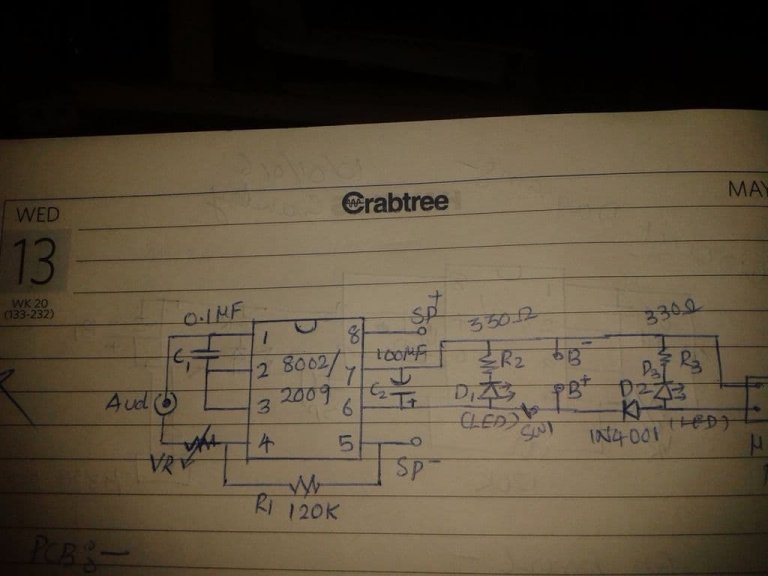 Crabtree
MAY
WED
13
WK 20
(133-232)
0.1MF
C1
Aud
VR
1
2
3
4
8002/
2009
8
7
6
5
SP+
100MF
C2
+
SP-
R1 120K
330Ω
R2
D1
(LED)
SW1
B-
B+
330Ω
R3
D3
D2
1N4001
(LED)
PCB:-